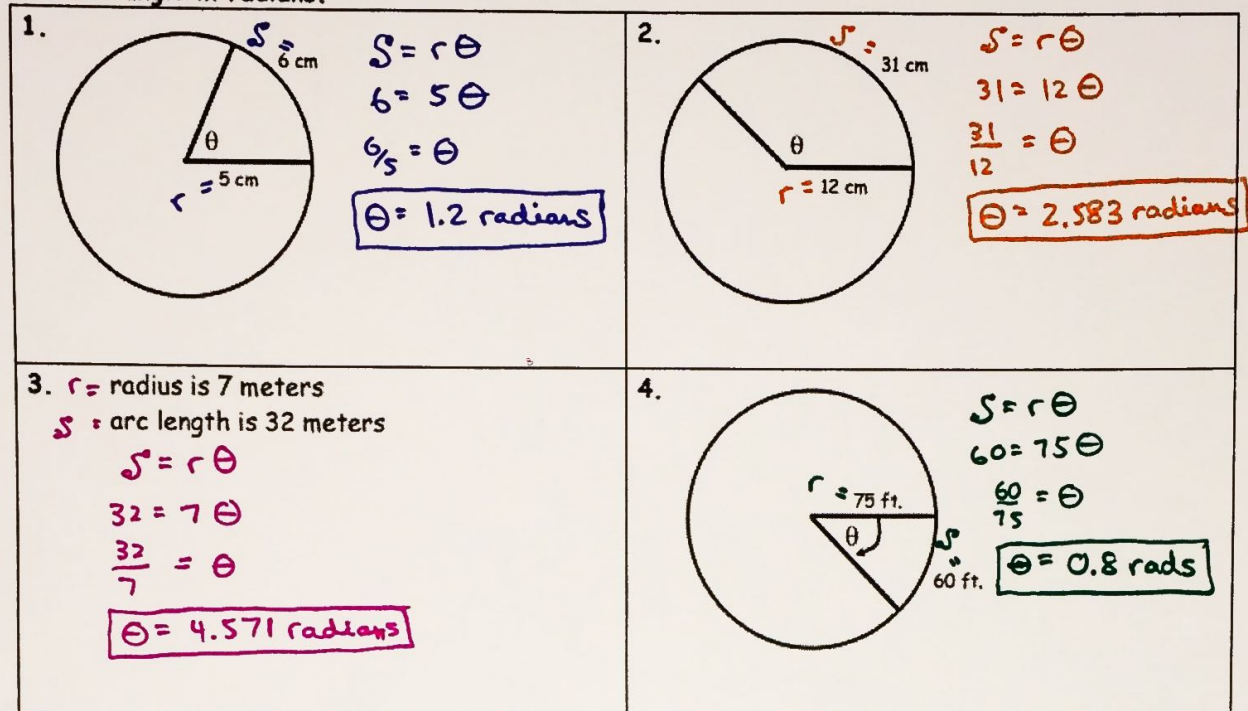 1.
S =
6 cm
θ
r = 5 cm
S = r θ
6 = 5 θ
6/5 = θ
θ = 1.2 radians
2.
S =
31 cm
θ
r = 12 cm
S = r θ
31 = 12 θ
31/12 = θ
θ = 2.583 radians
3. r = radius is 7 meters
S = arc length is 32 meters
S = r θ
32 = 7 θ
32/7 = θ
θ = 4.571 radians
4.
r = 75 ft.
θ
S =
60 ft.
S = r θ
60 = 75 θ
60/75 = θ
θ = 0.8 rads